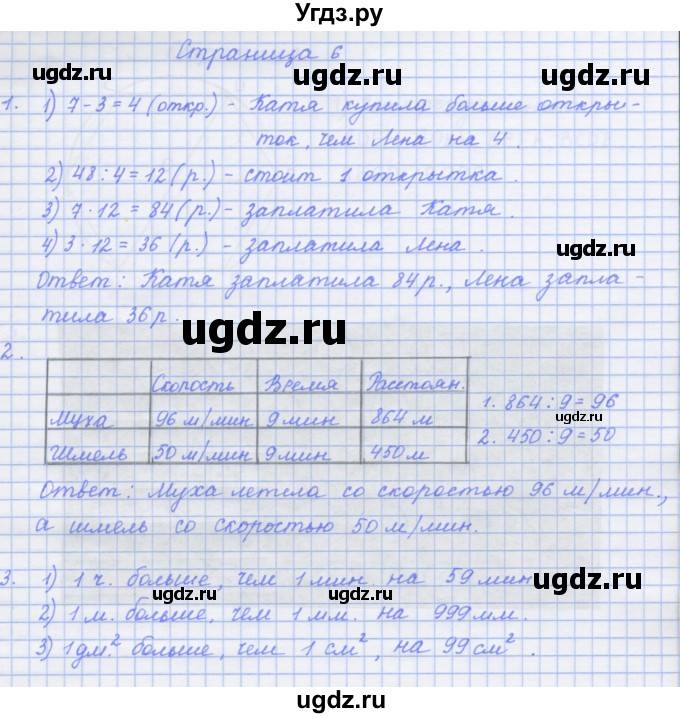 Угдз.ру
Страница 6
ugdz.ru ugdz.ru
1. 1) 7-3=4 (откр.) - Катя купила больше откры-
ток, чем Лена на 4.
ugdz.ru
2) 48:4=12 (р.) - стоит 1 открытка.
3) 7·12=84 (р.) - заплатила Катя.
4) 3·12=36 (р.) - заплатила Лена.
ugdz.ru
Ответ: Катя заплатила 84 р., Лена запла-
тила 36 р.
ugdz.ru
2.
Скорость Время Расстоян.
Муха 96 м/мин 9 мин 864 м
Шмель 50 м/мин 9 мин 450 м
1. 864:9=96
2. 450:9=50
ugdz.ru
Ответ: Муха летела со скоростью 96 м/мин.,
а шмель со скоростью 50 м/мин.
3. 1) 1 ч. больше, чем 1 мин. на 59 мин
ugdz.ru ugdz.ru ugdz.ru
2) 1 м. больше, чем 1 мм. на 999 мм.
3) 1 дм.² больше, чем 1 см², на 99 см².
ugdz.ru